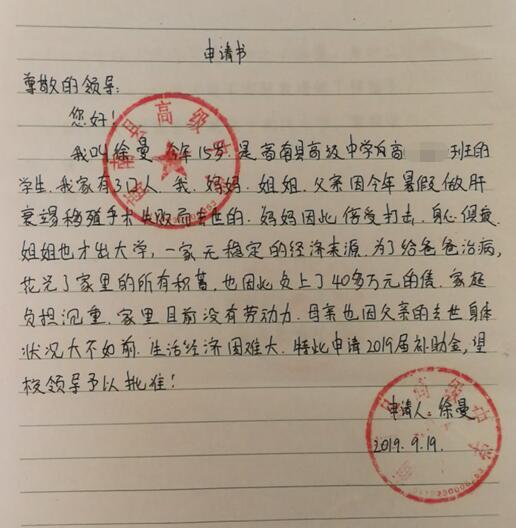 申请书
尊敬的领导:
您好!
我叫徐曼 今年15岁 是商南县高级中学高 班的
学生.我家有3口人.我.妈妈.姐姐.父亲因今年暑假做肝
衰竭移殖手术 去世的.妈妈因此倍受打击.身心俱疲.
姐姐也才出大学,一家无稳定的经济来源.为了给爸爸治病,
花光了家里的所有积蓄,也因此负上了40多万元的债.家庭
负担沉重.家里目前没有劳动力.母亲也因父亲的去世身体
状况大不如前.生活经济困难大.特此申请2019届补助金,望
校领导予以批准!
申请人:徐曼
2019.9.19.